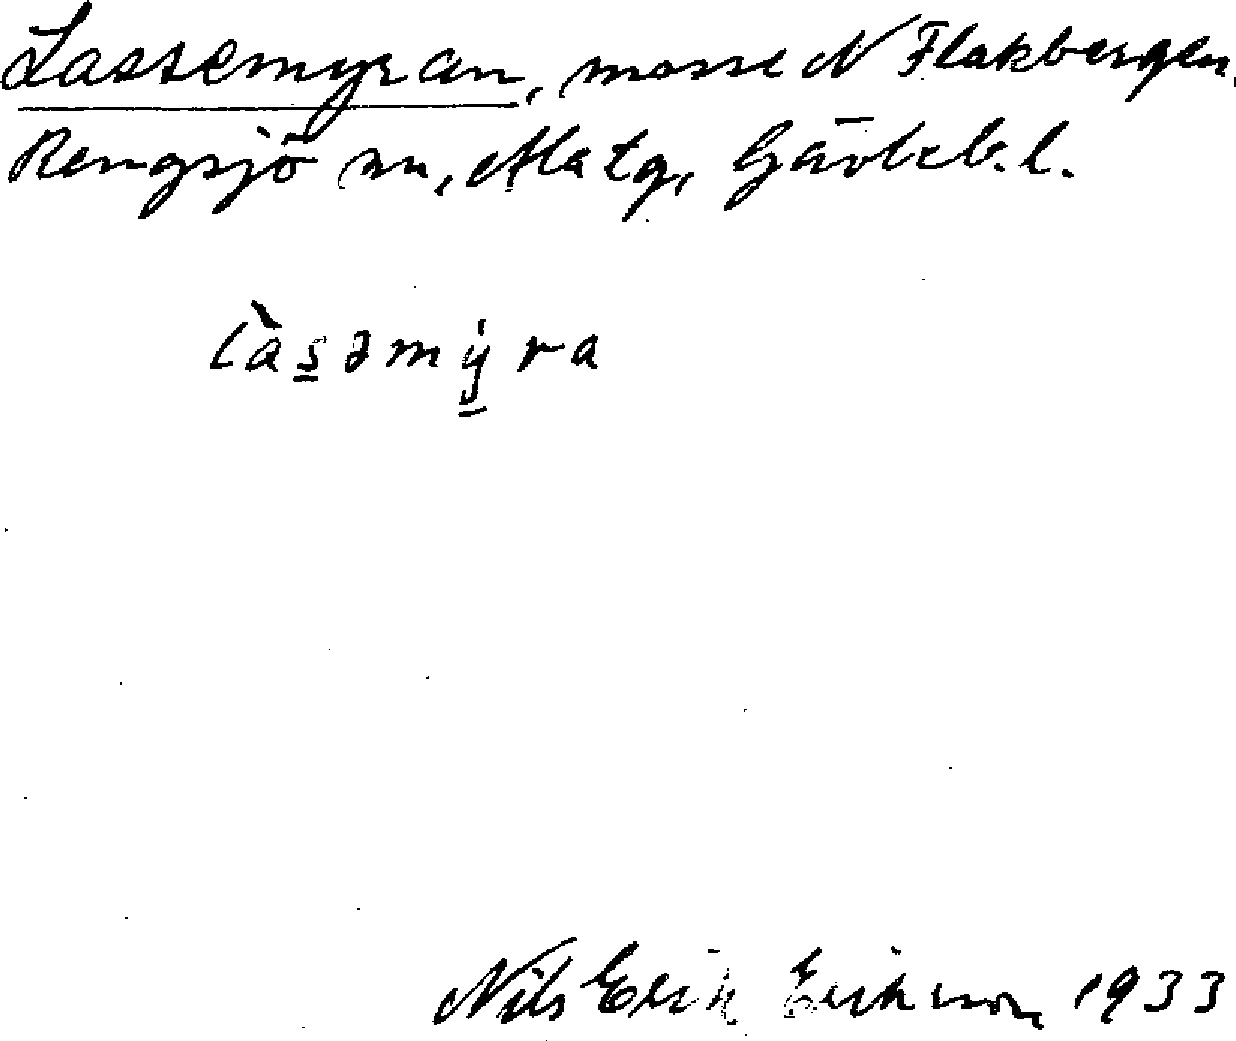 Lassemyran, mosse N Flakbergen,
Rengsjö sn, Alstg, Gävleb. l.
làs̠əmẏ̠ra
Nils Erik Erikson 1933